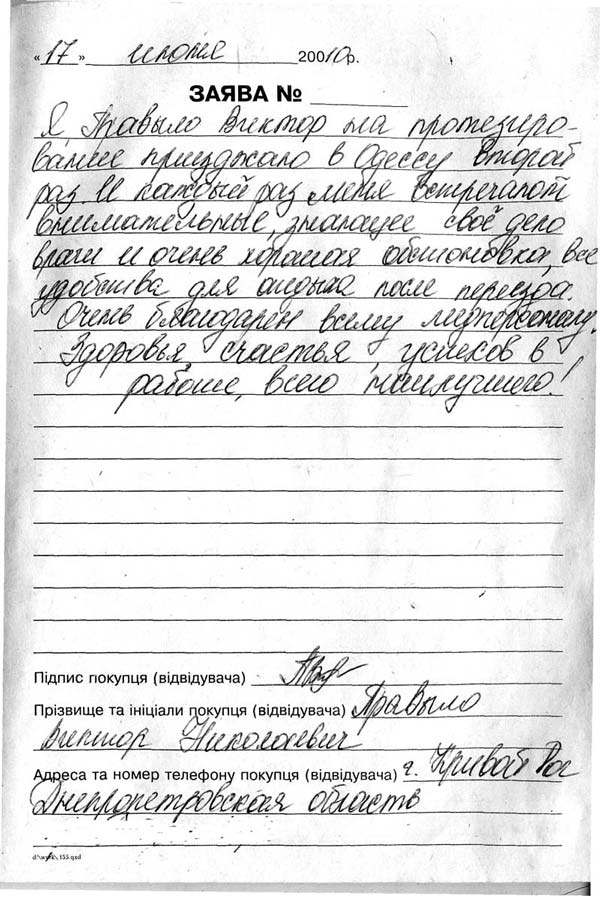 «17» июня 20010р.
ЗАЯВА №
Я, Правыло Виктор на протезиро-
вание приезжаю в Одессу второй
раз. И каждый раз меня встречают
внимательные, знающее своё дело
врачи и очень хорошая обстановка, все
удобства для отдыха после переезда.
Очень благодарен всему медперсоналу.
Здоровья, счастья, успехов в
работе, всего наилучшего!
Підпис покупця (відвідувача)
Прізвище та ініціали покупця (відвідувача) Правыло
Виктор Николаевич
Адреса та номер телефону покупця (відвідувача) г. Кривой Рог
Днепропетровская область